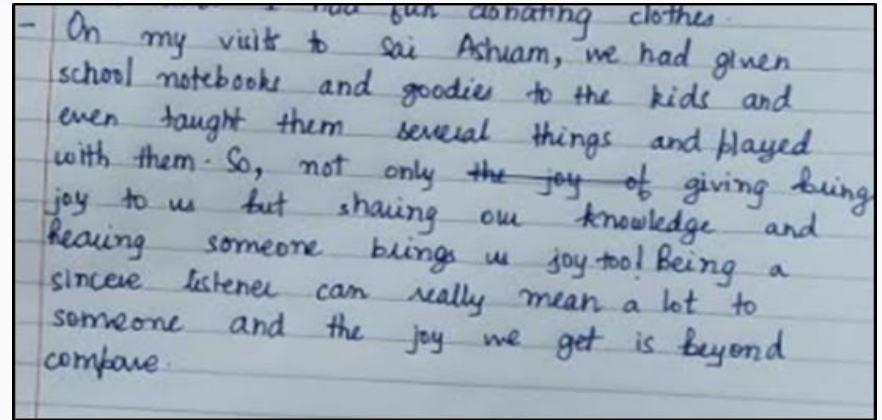 I had fun donating clothes.
- On my visit to Sai Ashram, we had given
school notebooks and goodies to the kids and
even taught them several things and played
with them. So, not only the joy of giving bring
joy to us but sharing our knowledge and
hearing someone brings us joy too! Being a
sincere listener can really mean a lot to
someone and the joy we get is beyond
compare.